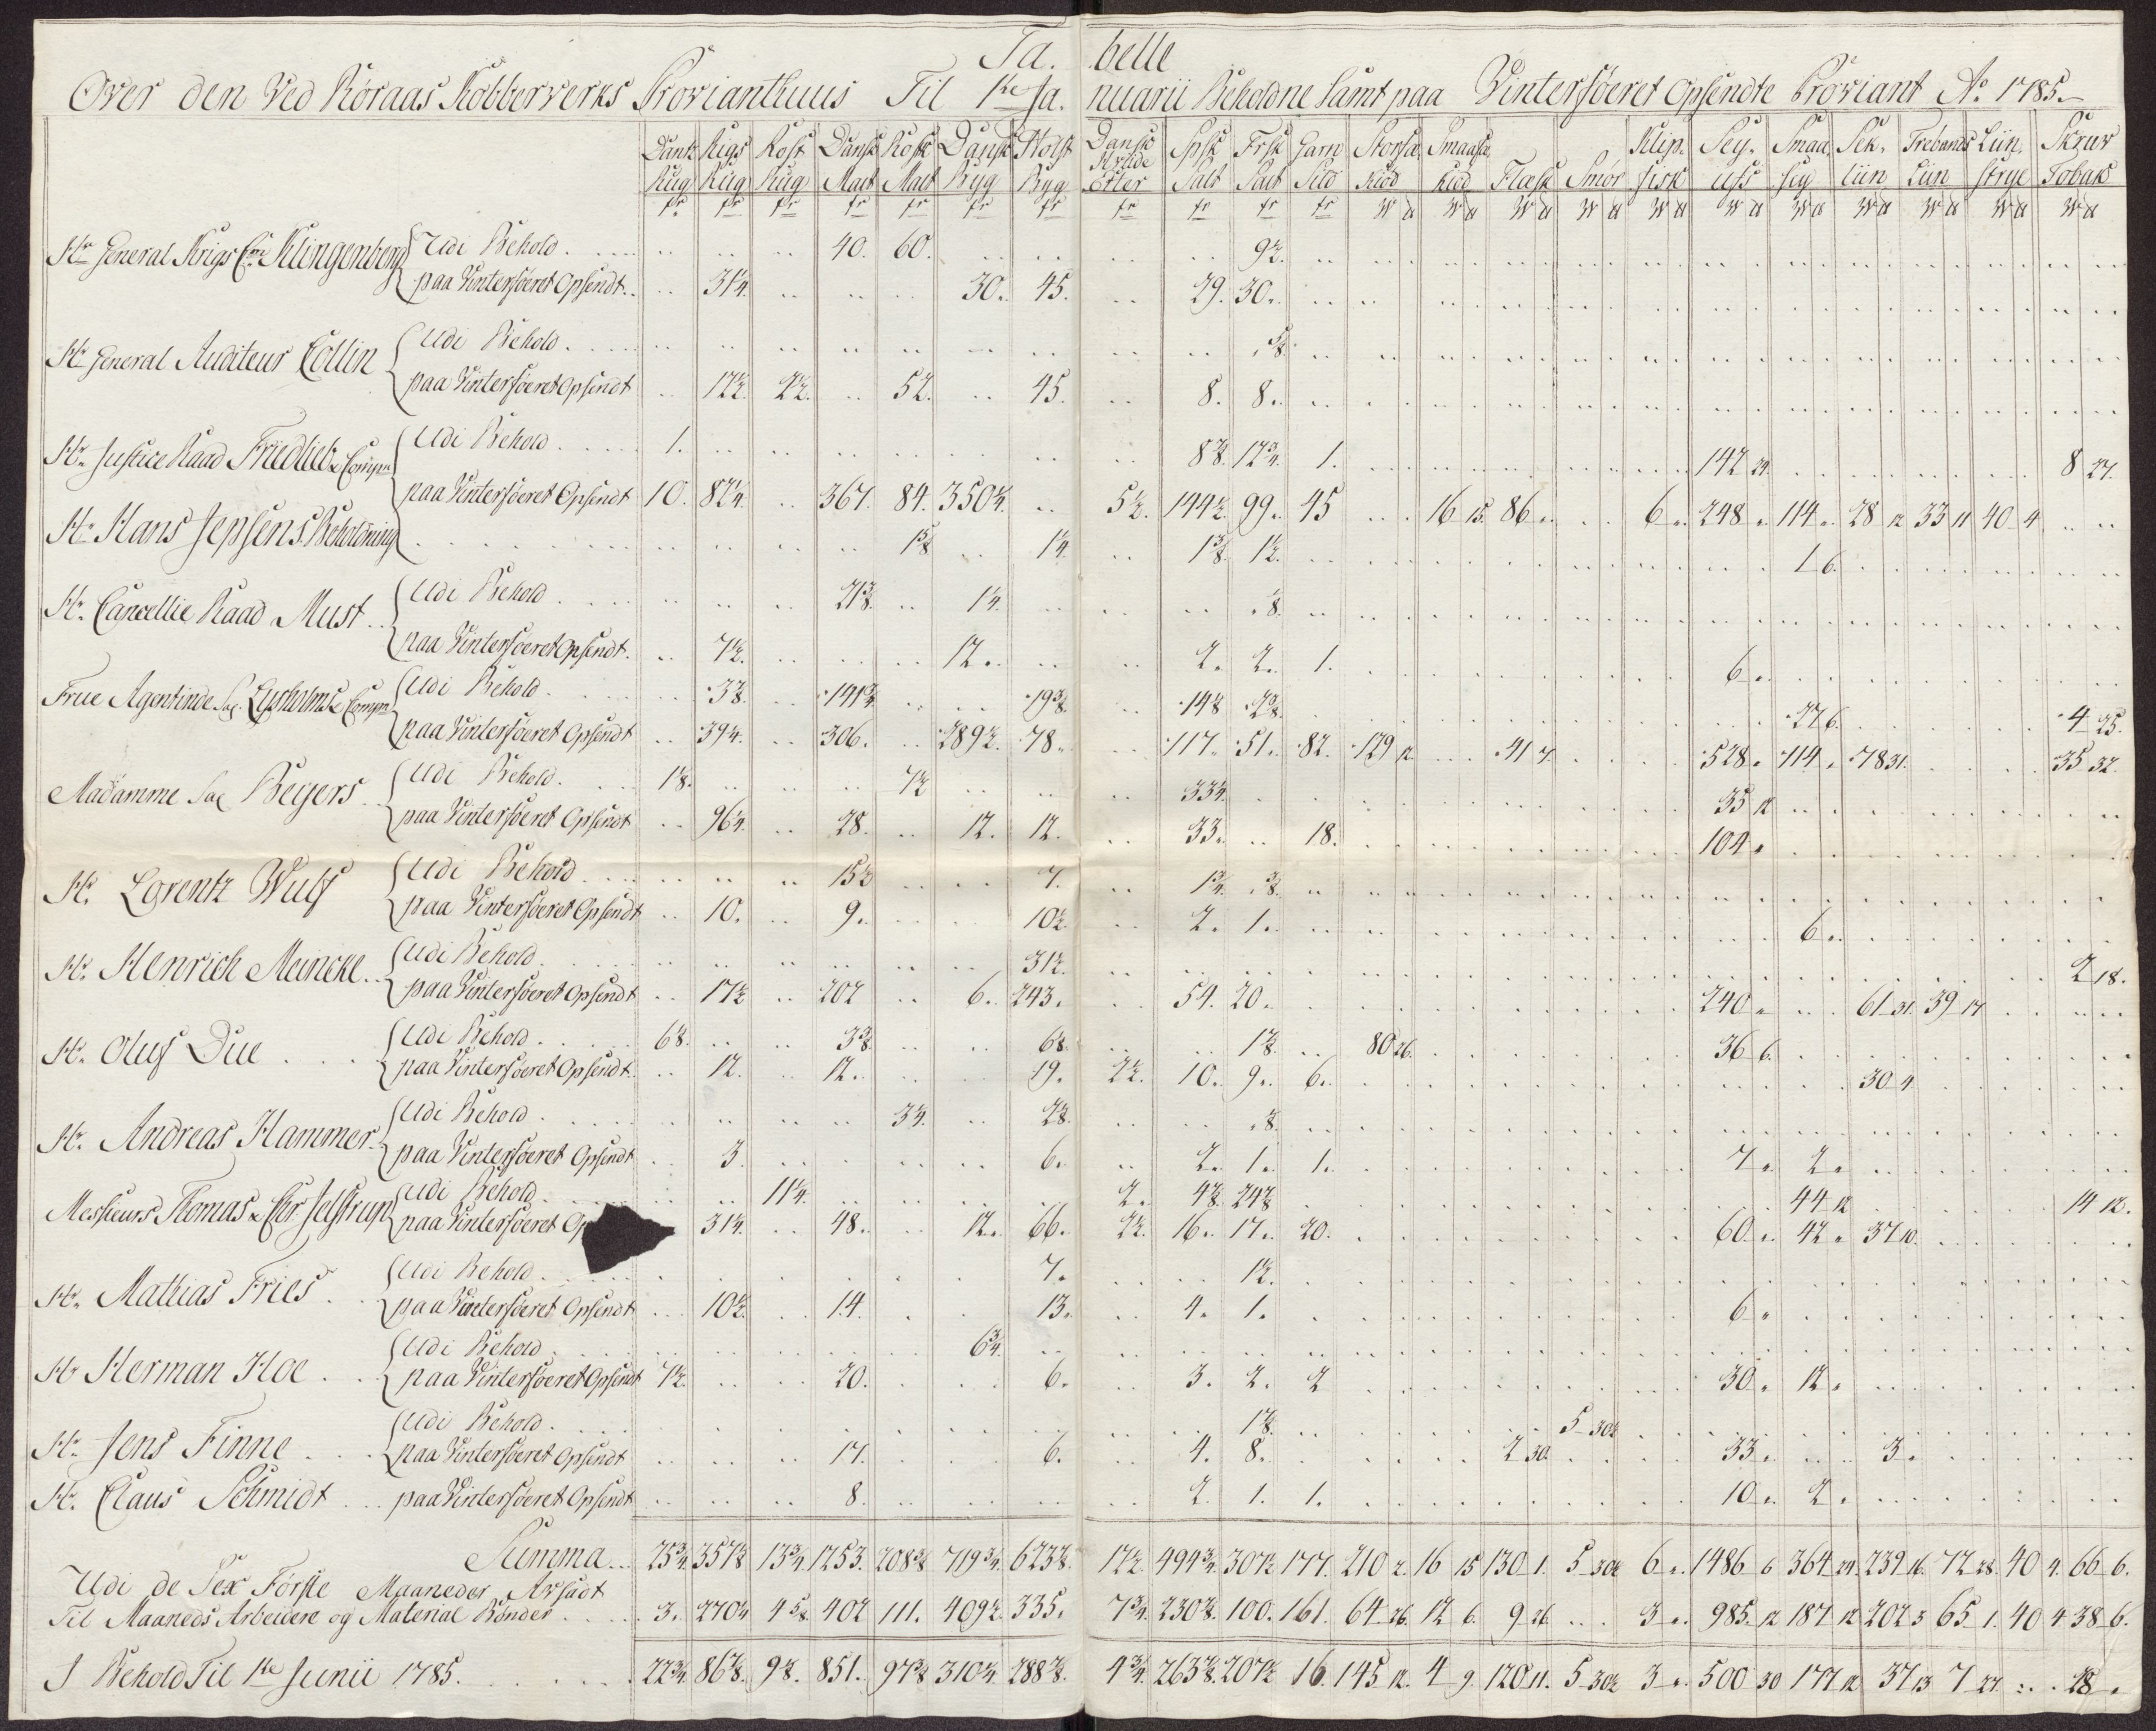 Ta. belle
Over den Ved Röraas Kobberverks Provianthuus Til 1ste Ja. nuarii Beholdne Samt paa Vinterföeret Opsendte Proviant Ao 1785.
Dantz Rigs Rosk Dansk Rosk Dansk Holst Dansk Hvide Spsk Frsk Garn Storsa. Smaasa. Klip. Sey. Smaa Sek. Trebands Liin. Skraa
Rug Rug Rug Malt Malt Byg Byg Erter Salt Salt Sild Kiöd Kiöd Flæsk Smör fisk uss sey liin Liin strye Tobak
Hr General Krigs Klingenberg Udi Behold 40. 60. 9½.
paa Vinterföeret Opsendt 31¼. 30. 45. 29. 30.
Hr General Auditeur Collin Udi Behold ⅝.
paa Vinterföeret Opsendt 17½. 2½. 52. 45. 8. 8.
Hr. Justice Raad Friedlieb & Comp. Udi Behold 1. 8⅞. 12¾. 1. 142 24. 8 27.
paa Vinterföeret Opsendt 10. 82¼. 367. 84. 350¼. 5½. 144½. 99. 45 16 15. 86. 6. 248. 114. 28 12 33 11 40 4
Hr. Hans Jepsens Beholdning 1⅝ 1¼. 1⅜. 1½. 1 6.
Hr. Cancellie Raad Must Udi Behold 21⅜. 1¼.
paa Vinterföeret Opsendt. 7½. 12. 2. 2. 1. 6.
Frue Agentinde Sal. Lysholms & Comp. Udi Behold 3⅞. 141¾. 19⅜. 14⅞ 2⅜. 27 6. 4 25.
paa Vinterföeret Opsendt 39¼. 306. 289½. 78. 117. 51. 82. 129 12 41 7. 528. 114. 78 31. 35 32.
Madamme Sal Beyers Udi Behold. 1⅛. 7½ 33¼. 35 12
paa Vinterföeret Opsendt 96¼. 28. 12. 12. 33. 18. 104.
Hr. Lorentz Wulf Udi Behold 15½ 7. 1¾. ⅜.
paa Vinterföeret Opsendt 10. 9. 10½. 2. 1. 6.
Hr. Henrich Meincke Udi Behold. 31½. 2 18.
paa Vinterföeret Opsendt 17½ 202 6. 243. 54. 20. 240. 61 31. 39 17
Hr. Oluf Due Udi Behold. 6⅛. 3⅜. 6⅛. 1⅞. 80 26. 36 6.
paa Vinterföeret Opsendt. 12. 12. 19. 2½. 10. 9. 6. 30 4
Hr. Andreas Hammer Udi Behold 3¼. 2⅞.
paa Vinterföeret Opsendt 3. 6. 2. 1. 1. 7. 2.
Messieurs Thomas & Chr Jelstrup Udi Behold 11¼. 2. 4⅞. 24⅞ 44 12 14 12.
paa Vinterföeret Op 31¼. 48. 12. 66. 2½. 16. 17. 20. 60. 42. 37 10.
Hr. Mathias Fries Udi Behold. 7. 1½.
paa Vinterföeret Opsendt 10½. 14. 13. 4. 1. 6.
Hr Herman Hoe Udi Behold 6¾.
paa Vinterföeret Opsendt 7½. 20. 6. 3. 2. 2 30. 12.
Hr. Jens Finne Udi Behold 1⅞. 5 30½
paa Vinterföeret Opsendt 17. 6. 4. 8. 2 30. 33. 3.
Hr. Claus Schmidt paa Vinterföeret Opsendt 8. 2. 1. 1. 10. 2.
Summa 25¾. 357⅞ 13¾. 1253. 208⅜ 719¾. 623⅞. 12½. 494¾. 307½ 177. 210 2. 16 15 130 1. 5 30½ 6. 1486 6 364 24. 239 16. 72 28. 40 4. 66 6.
Udi de Sex Förste Maaneder Afsadt
Til Maaneds Arbeidere og Material Bönder 3. 270¼ 4⅝. 402 111. 409½. 335. 7¾. 230⅞. 100. 161. 64 26. 12 6. 9 26 3. 985. 12 187 12 202 3 65 1. 40 4 38 6.
I Behold Til 1ste Junii 1785. 22¾. 86⅞. 9⅛. 851. 97⅜ 310¼. 288⅞. 4¾. 263⅞. 207½ 16. 145 12. 4 9. 120 11. 5 30½ 3. 500 30 177 12 37 13 7 27 28.